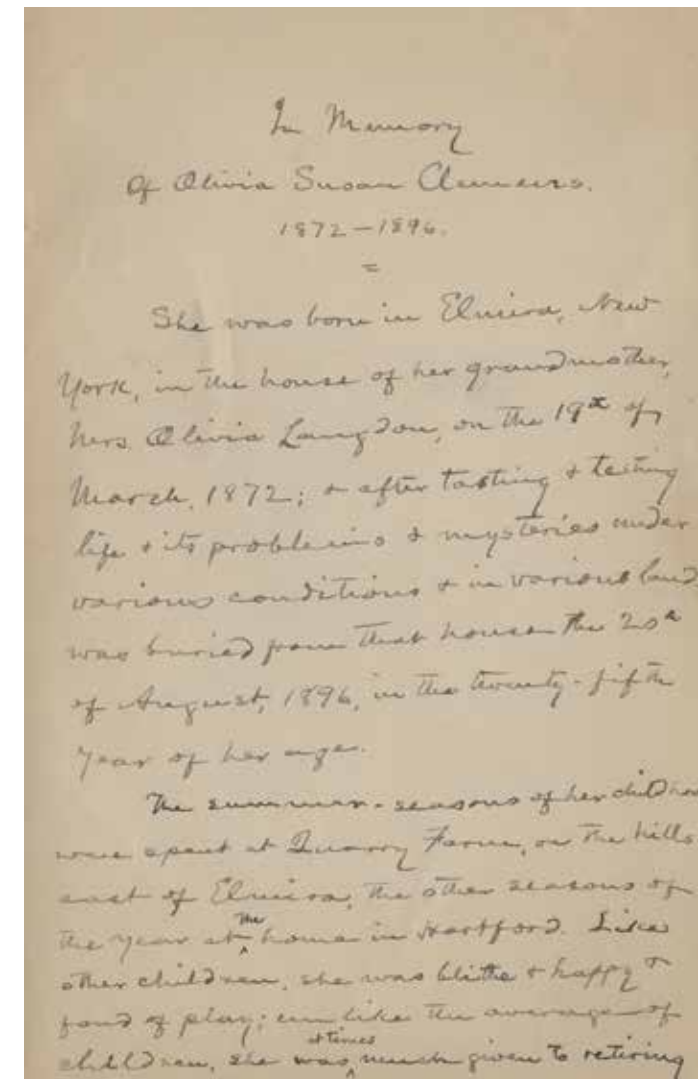 In Memory
Of Olivia Susan Clemens.
1872–1896.
=
She was born in Elmira, New
York, in the house of her grandmother,
Mrs. Olivia Langdon, on the 19th of
March, 1872; & after tasting & testing
life & its problems & mysteries under
various conditions & in various land
was buried from that house the 20th
of August, 1896, in the twenty-fifth
year of her age.
The summer-seasons of her childhoo
were spent at Quarry Farm, on the hills
east of Elmira, the other seasons of
the year at the home in Hartford. Like
other children, she was blithe & happy &
fond of play; unlike the average of
children, she was at times much given to retiring